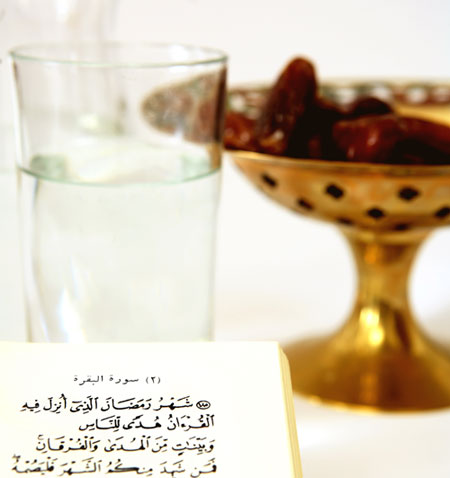 (٢) سورة البقرة
١٨٥ شَهْرُ رَمَضَانَ الَّذِىٓ أُنزِلَ فِيهِ
الْقُرْءَانُ هُدًى لِّلنَّاسِ
وَبَيِّنَٰتٍ مِّنَ الْهُدَىٰ وَالْفُرْقَانِ
فَمَن شَهِدَ مِنكُمُ الشَّهْرَ فَلْيَصُمْهُ